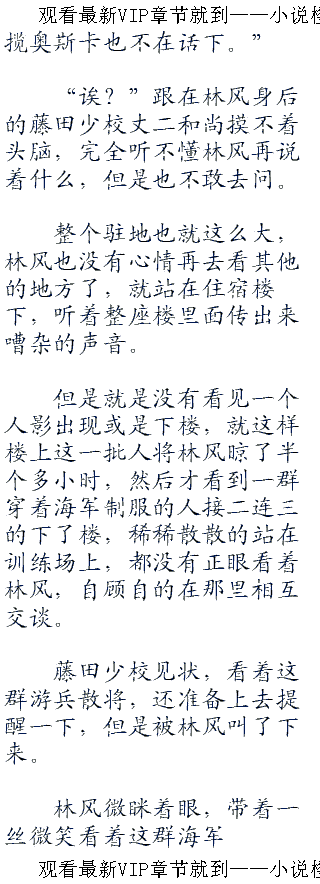 观看最新VIP章节就到——小说
揽奥斯卡也不在话下。”
“诶？”跟在林风身后
的藤田少校丈二和尚摸不着
头脑，完全听不懂林风再说
着什么，但是也不敢去问。
整个驻地也就这么大，
林风也没有心情再去看其他
的地方了，就站在住宿楼
下，听着整座楼里面传出来
嘈杂的声音。
但是就是没有看见一个
人影出现或是下楼，就这样
楼上这一批人将林风晾了半
个多小时，然后才看到一群
穿着海军制服的人接二连三
的下了楼，稀稀散散的站在
训练场上，都没有正眼看着
林风，自顾自的在那里相互
交谈。
藤田少校见状，看着这
群游兵散将，还准备上去提
醒一下，但是被林风叫了下
来。
林风微眯着眼，带着一
丝微笑看着这群海军
观看最新VIP章节就到——小说